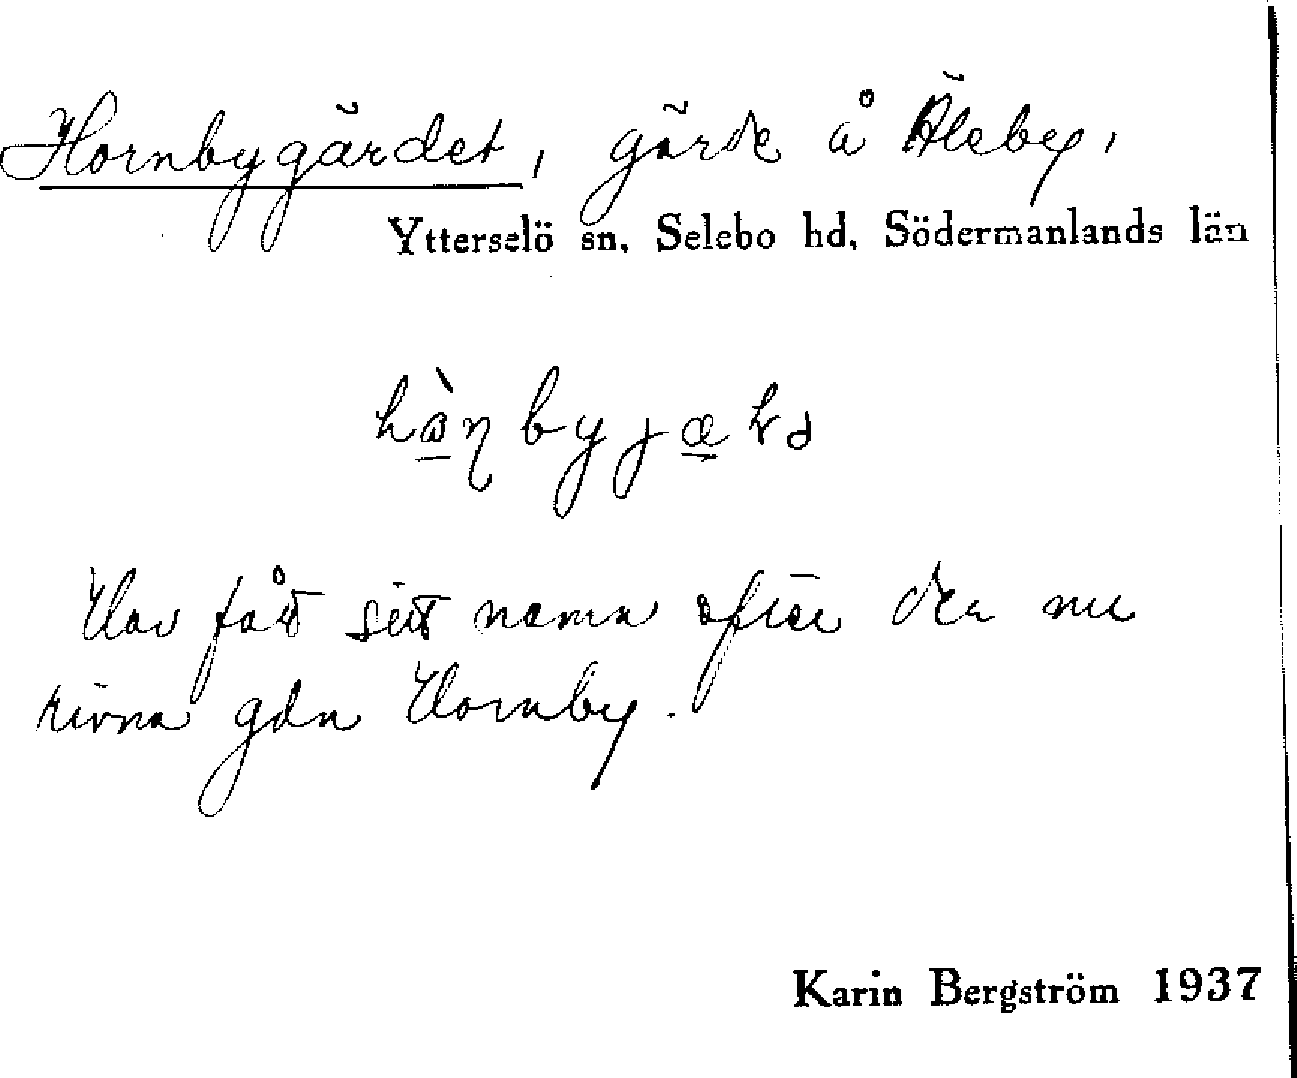 Hornbygärdet, gärde å Äleby,
Ytterselö sn, Selebo hd, Södermanlands län
Har fått sitt namn efter den nu
rivna gdn Hornby.
Karin Bergström 1937